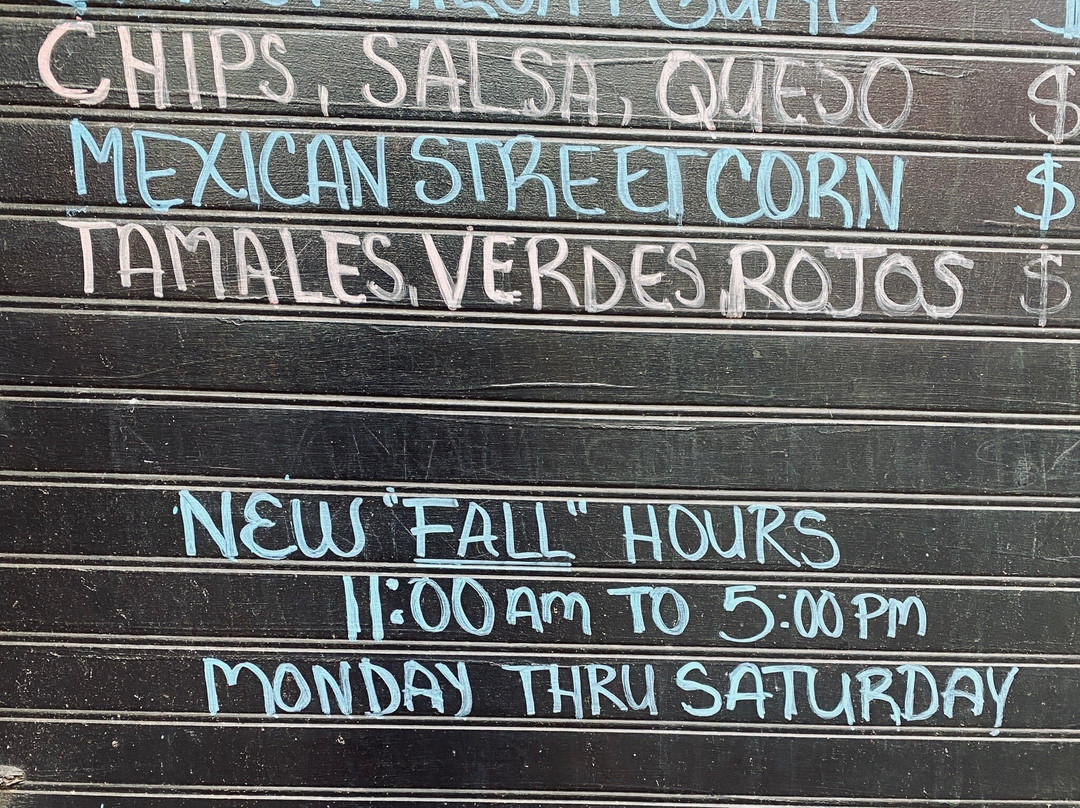 CHIPS, SALSA, QUESO $
MEXICAN STREET CORN $
TAMALES, VERDES, ROJOS $
NEW "FALL" HOURS
11:00 AM TO 5:00 PM
MONDAY THRU SATURDAY